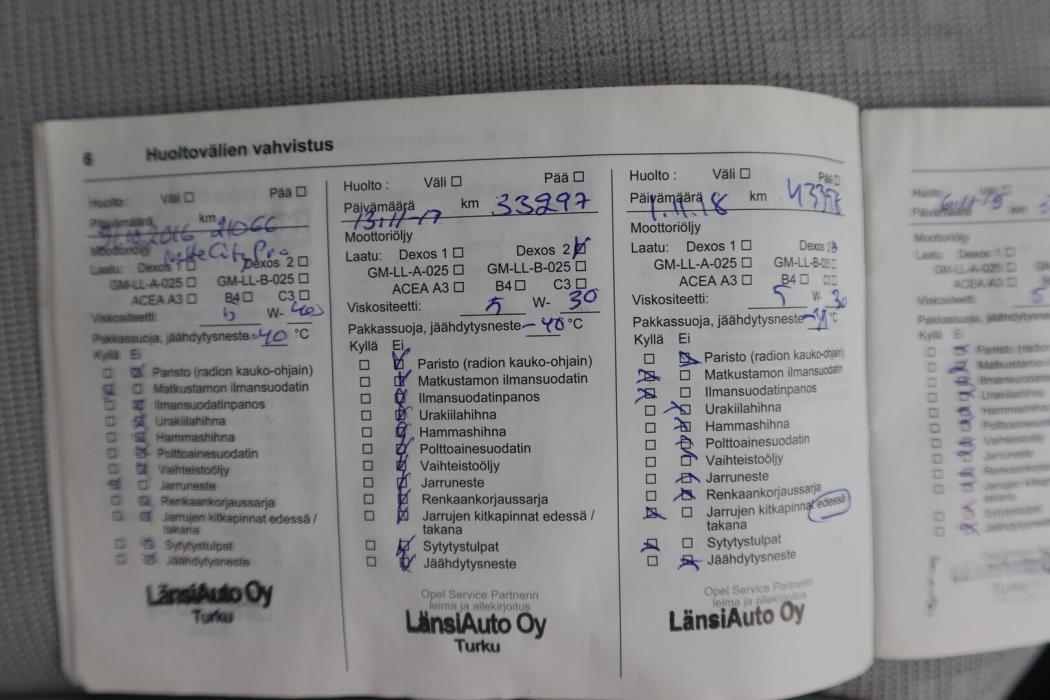 6 Huoltovälien vahvistus
Huolto : Väli Pää
Päivämäärä km 21066
Moottoriöljy Neste City Pro
Laatu: Dexos 1 Dexos 2
GM-LL-A-025 GM-LL-B-025
ACEA A3 B4 C3
Viskositeetti: 5 W- 40
Pakkassuoja, jäähdytysneste -40 °C
Kyllä Ei
Paristo (radion kauko-ohjain)
Matkustamon ilmansuodatin
Ilmansuodatinpanos
Urakiilahihna
Hammashihna
Polttoainesuodatin
Vaihteistoöljy
Jarruneste
Renkaankorjaussarja
Jarrujen kitkapinnat edessä /
takana
Sytytystulpat
Jäähdytysneste
LänsiAuto Oy
Turku
Huolto : Väli Pää
Päivämäärä km 33297
13.11-17
Moottoriöljy
Laatu: Dexos 1 Dexos 2
GM-LL-A-025 GM-LL-B-025
ACEA A3 B4 C3
Viskositeetti: 5 W- 30
Pakkassuoja, jäähdytysneste -40 °C
Kyllä Ei
Paristo (radion kauko-ohjain)
Matkustamon ilmansuodatin
Ilmansuodatinpanos
Urakiilahihna
Hammashihna
Polttoainesuodatin
Vaihteistoöljy
Jarruneste
Renkaankorjaussarja
Jarrujen kitkapinnat edessä /
takana
Sytytystulpat
Jäähdytysneste
Opel Service Partnerin
leima ja allekirjoitus
LänsiAuto Oy
Turku
Huolto : Väli Pää
Päivämäärä km
1.11.18
Moottoriöljy
Laatu: Dexos 1 Dexos 2
GM-LL-A-025 GM-LL-B-025
ACEA A3 B4
Viskositeetti: 5 W- 30
Pakkassuoja, jäähdytysneste °C
Kyllä Ei
Paristo (radion kauko-ohjain)
Matkustamon ilmansuodatin
Ilmansuodatinpanos
Urakiilahihna
Hammashihna
Polttoainesuodatin
Vaihteistoöljy
Jarruneste
Renkaankorjaussarja
Jarrujen kitkapinnat edessä
takana
Sytytystulpat
Jäähdytysneste
Opel Service Partnerin
leima ja allekirjoitus
LänsiAuto Oy
Huolto: Väli
Moottoriöljy
Laatu: Dexos 1
GM-LL-A-025
ACEA A3
Viskositeetti: 5
Pakkassuoja, jäähdytysneste
Kyllä Ei